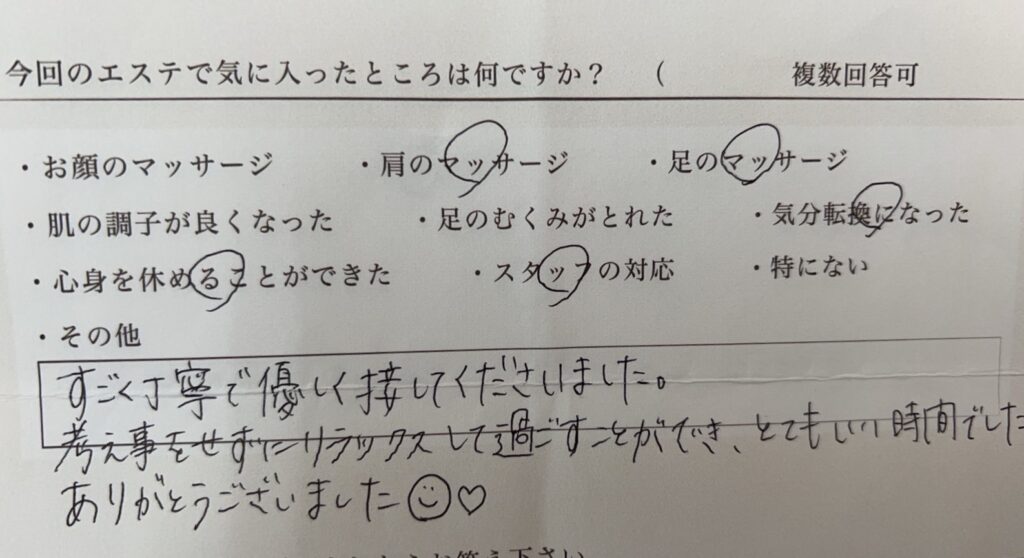 今回のエステで気に入ったところは何ですか？　（　　　複数回答可
・お顔のマッサージ　・肩のマッサージ　・足のマッサージ
・肌の調子が良くなった　・足のむくみがとれた　・気分転換になった
・心身を休めることができた　・スタッフの対応　・特にない
・その他
すごく丁寧で優しく接してくださいました。
考え事をせずにリラックスして過ごすことができ、とてもいい時間でした
ありがとうございました☺♡
お答え下さい